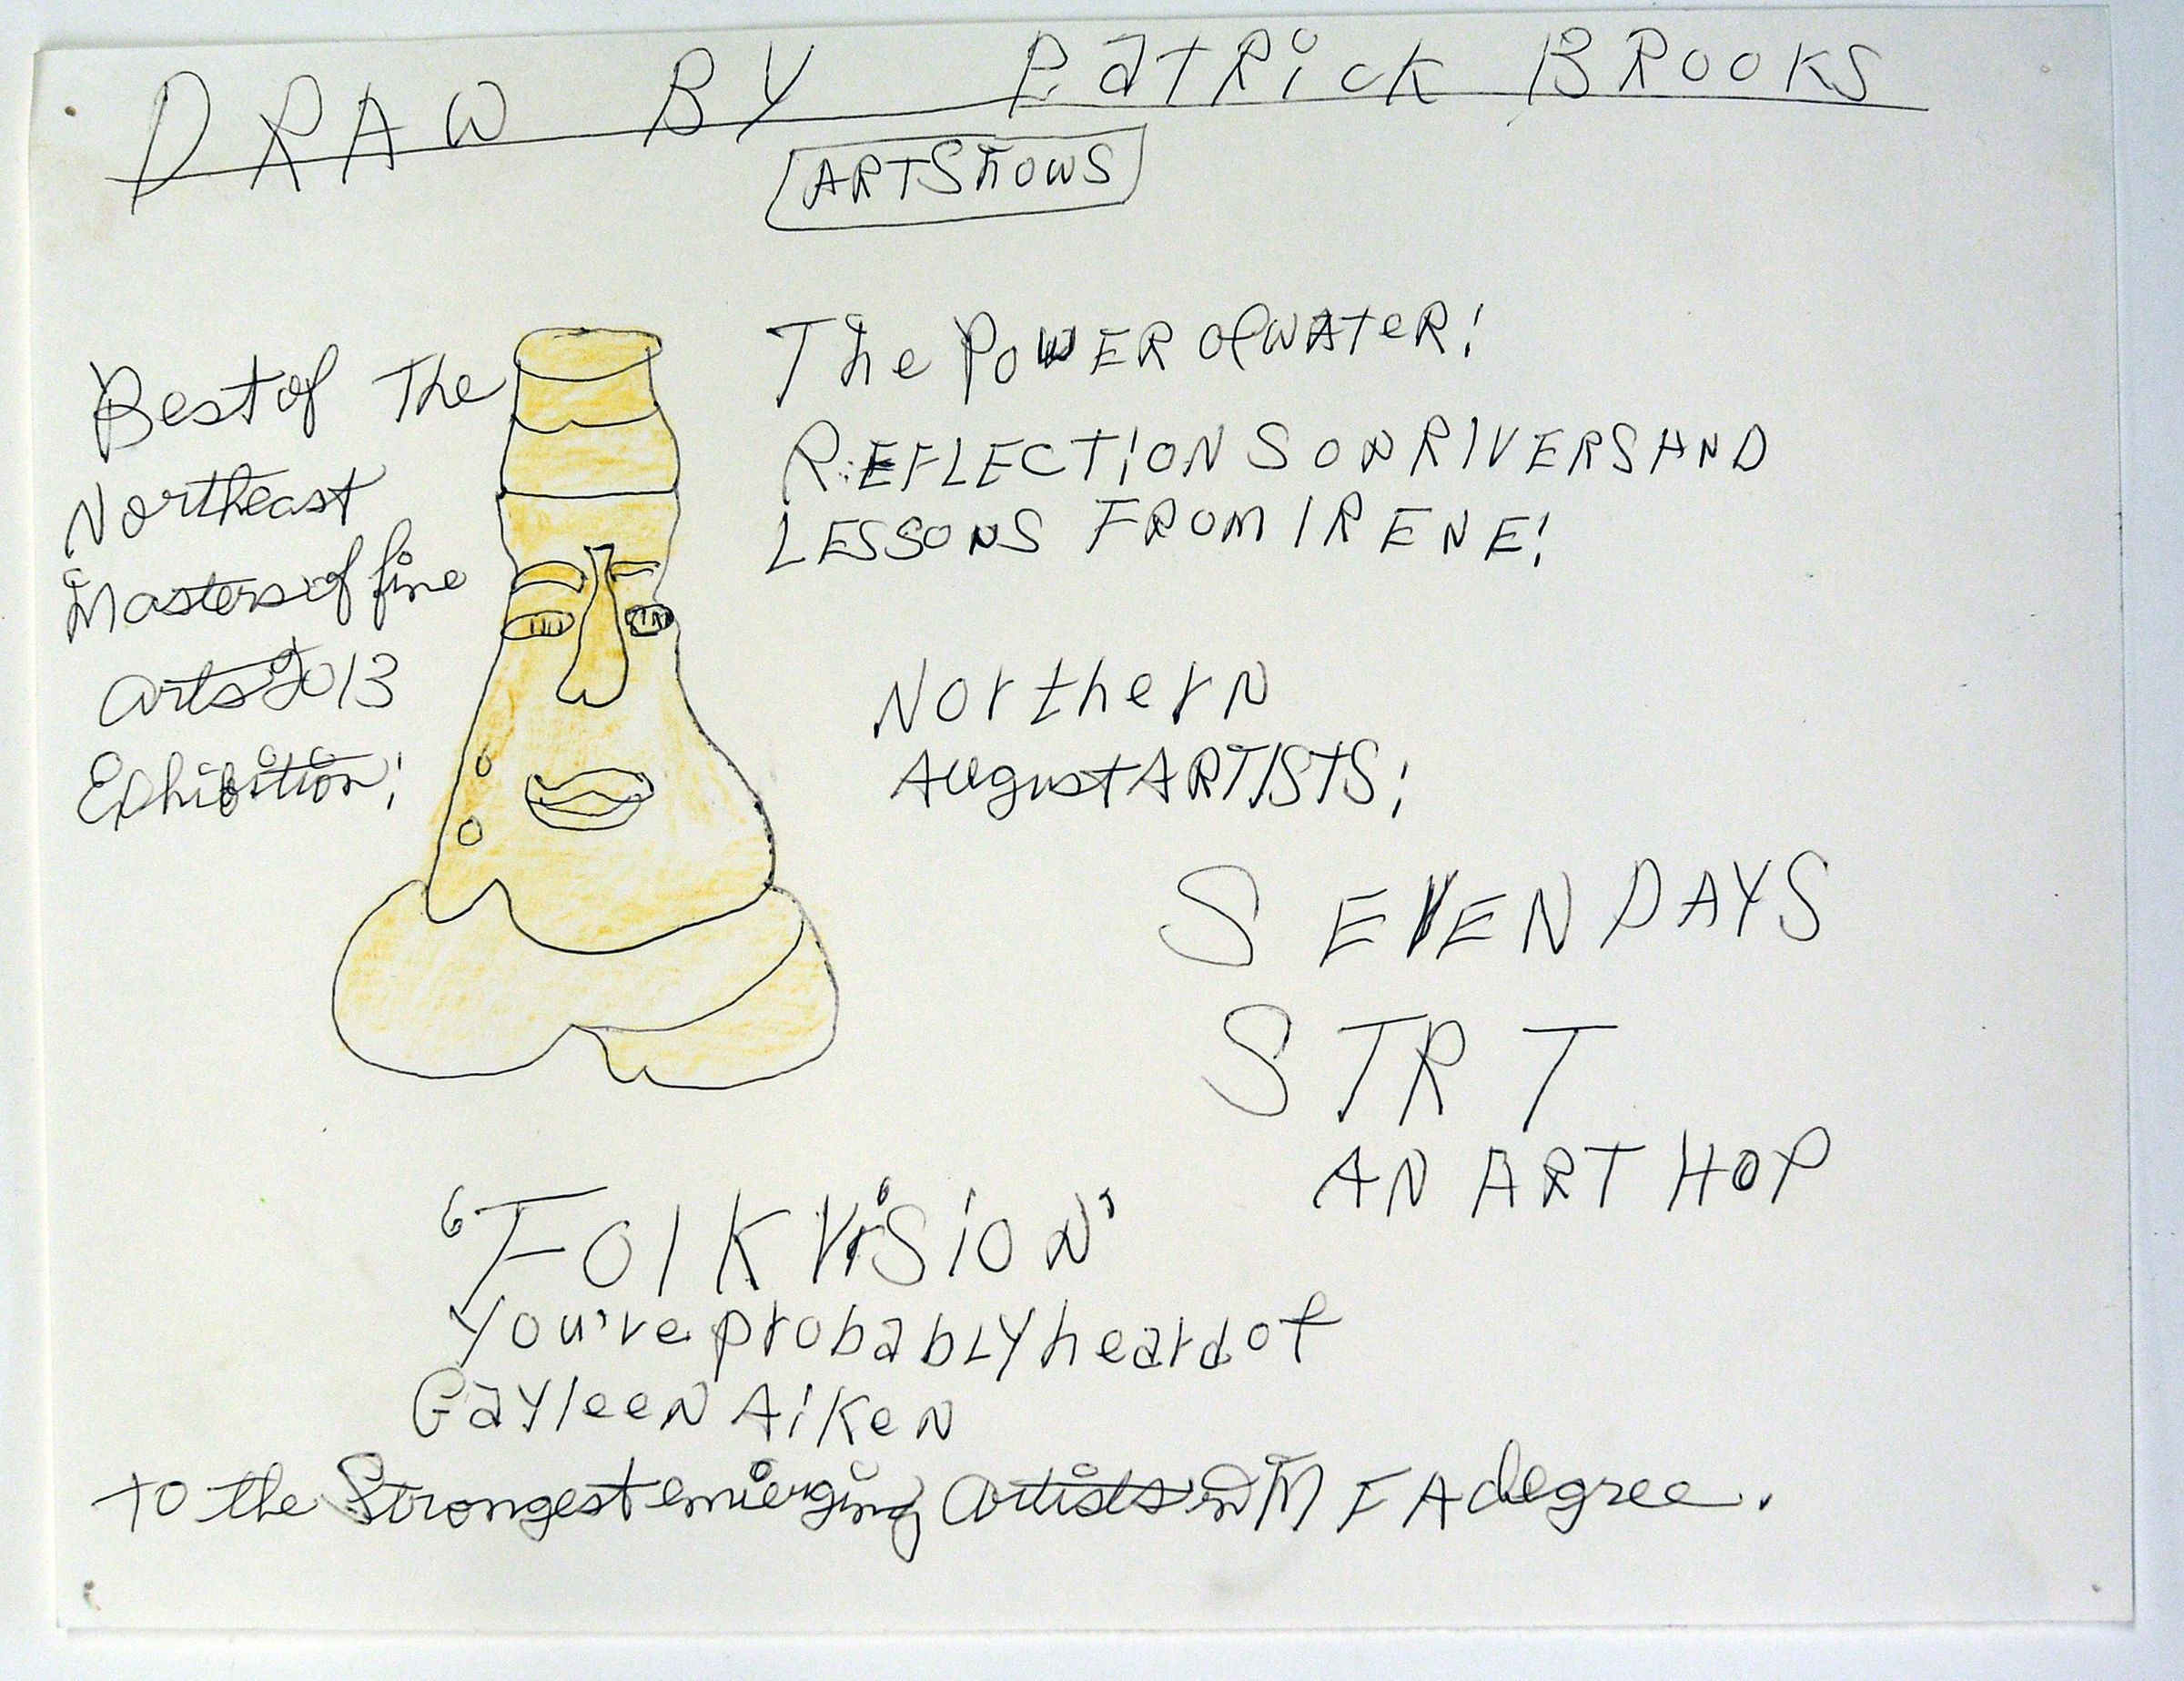 DRAW BY PATRICK BROOKS
ARTSHOWS
Best of The
Northeast
Masters of fine
arts 2013
Exhibition!
The PowER of WAteR!
REFLECTIONS ON RIVERS AND
LESSONS FROM IRENE!
NortherN
August ARTISTS;
SEVEN DAYS
STRT
AN ART HOP
'FOlK ViSiON'
You've probabLY heard of
GayleeN AiKeN
to the Strongest emierging artists in MFA degree.